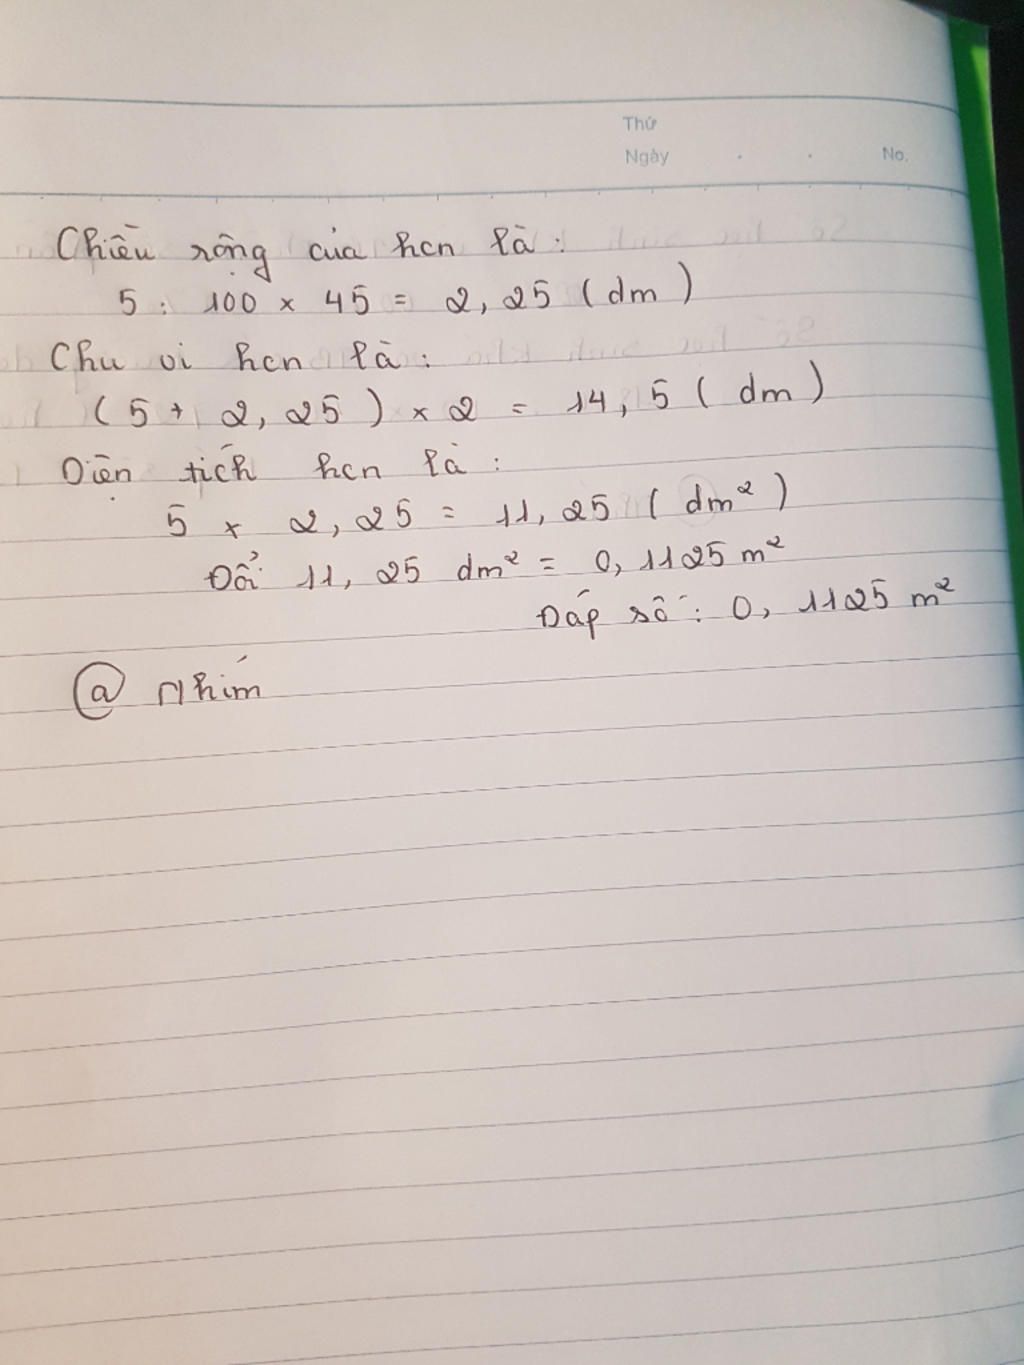 Thứ
Ngày . . No.
Chiều rộng của hcn là:
5 : 100 x 45 = 2,25 (dm)
Chu vi hcn là:
(5 + 2,25) x 2 = 14,5 (dm)
Diện tích hcn là:
5 x 2,25 = 11,25 (dm²)
Đổi 11,25 dm² = 0,1125 m²
Đáp số: 0,1125 m²
@ Nhím